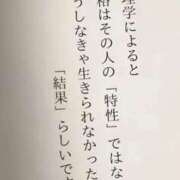 理学によると
格はその人の「特性」ではな
うしなきゃ生きられなかった
「結果」らしいです